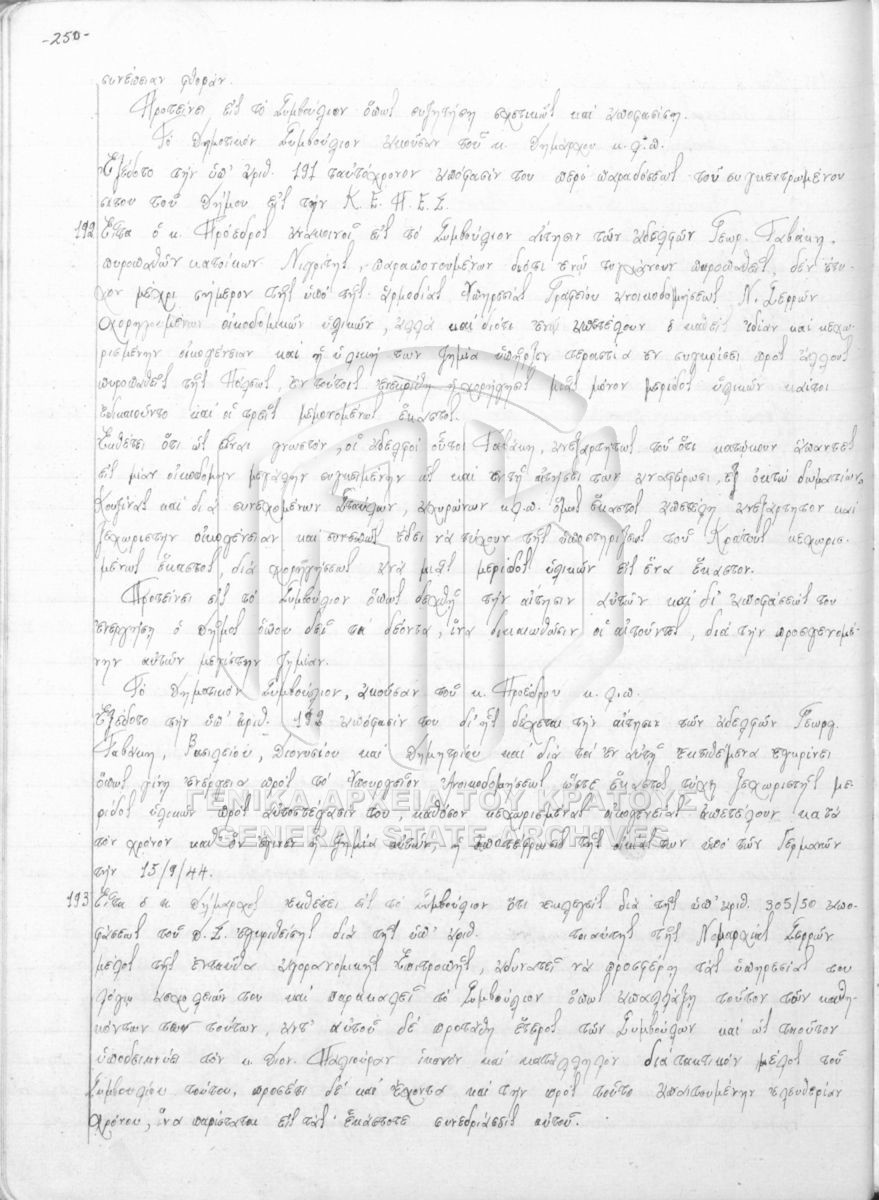 -250-
συνέπειαν φθοράν.
Προτείνει εἰς τό Συμβούλιον ὅπως συζητήση σχετικῶς καί ἀποφασίση.
Τό Δημοτικόν Συμβούλιον ἀκοῦσαν τοῦ κ. Δημάρχου κ.λ.π.
Ἐξέδοτο τήν ὑπ' ἀριθ. 191 ταὐτόχρονον ἀπόφασίν του περί παραδόσεως τοῦ συγκεντρωμένου
σίτου τοῦ Δήμου εἰς τήν Κ.Ε.Π.Ε.Σ.
192 Εἶτα ὁ κ. Πρόεδρος ἀνακοινοῖ εἰς τό Συμβούλιον αἴτησιν τῶν ἀδελφῶν Γεωρ. Γαβάκη,
πυροπαθῶν κατοίκων Νιγρίτης, παραπονουμένων διότι ἐνῷ τυγχάνουν πυροπαθεῖς, δέν ἔτυ-
χον μέχρι σήμερον τῆς ὑπό τῆς ἁρμοδίας Ὑπηρεσίας Γραφείου ἀνοικοδομήσεως Ν. Σερρῶν
χορηγουμένων οἰκοδομικῶν ὑλικῶν, ἀλλά καί διότι ἐνῷ ἀπετέλουν ὁ καθείς ἰδίαν καί κεχω-
ρισμένην οἰκογένειαν καί ἡ ὑλική των ζημία ὑπῆρξεν τεραστία ἐν συγκρίσει πρός ἄλλους
πυροπαθεῖς τῆς Πόλεως, ἐν τούτοις ἐνεκρίθη ἡ χορήγησις μιᾶς μόνον μερίδος ὑλικῶν καίτοι
ἐδικαιοῦντο καί οἱ τρεῖς μεμονομένως ἕκαστος.
Ἐκθέτει ὅτι ὡς εἶναι γνωστόν, οἱ ἀδελφοί οὗτοι Γαβάκη, ἀνεξαρτήτως τοῦ ὅτι κατώκουν ἅπαντες
εἰς μίαν οἰκοδομήν μεγάλην συγκειμένην ὡς καί ἐν τῇ αἰτήσει των ἀναφέρωσι, ἐξ ὀκτώ δωματίων,
Κουζίνας καί διά συνεχομένων Σταύλων, ἀχυρώνων κ.λ.π. ὅμως ἕκαστος ἀπετέλη ἀνεξάρτητον καί
ξεχωριστήν οἰκογένειαν καί συνεπῶς ἔδει νά τύχουν τῆς ὑποστηρίξεως τοῦ Κράτους κεχωρισ-
μένως ἕκαστος, διά χορηγήσεως ἀνά μιᾶς μερίδος ὑλικῶν εἰς ἕνα ἕκαστον.
Προτείνει εἰς τό Συμβούλιον ὅπως δεχθῇ τήν αἴτησιν αὐτῶν καί δι' ἀποφάσεώς του
ἐνεργήση ὁ Δῆμος ὅπου δεῖ τά δέοντα, ἵνα δικαιωθῶσιν οἱ αἰτοῦντες, διά τήν προσγενομέ-
νην αὐτῶν μεγίστην ζημίαν.
Τό Δημοτικόν Συμβούλιον, ἀκοῦσαν τοῦ κ. Προέδρου κ.λ.π.
Ἐξέδοτο τήν ὑπ' ἀριθ. 192 ἀπόφασίν του δι' ἧς δέχεται τήν αἴτησιν τῶν ἀδελφῶν Γεωργ.
Γαβάκη, Βασιλείου, Διονυσίου καί Δημητρίου καί διά τά ἐν αὐτῇ ἐκτιθέμενα ἐγκρίνει
ὅπως γίνη ἐνέργεια πρός τό Ὑπουργεῖον Ἀνοικοδομήσεως ὥστε ἕκαστος τύχη ξεχωριστῆς με-
ρίδος ὑλικῶν πρός ἀποστέγασίν του, καθόσον κεχωρισμένας οἰκογενείας ἀπετέλουν κατά
τόν χρόνον καθ' ὅν ἔγινεν ἡ ζημία αὐτῶν, ἡ ἀποτέφρωσις τῆς οἰκίας των ὑπό τῶν Γερμανῶν
τήν 15/9/44.
193 Εἶτα ὁ κ. Δήμαρχος ἐκθέτει εἰς τό Συμβούλιον ὅτι ἐκλεγείς διά τῆς ὑπ' ἀριθ. 305/50 ἀπο-
φάσεως τοῦ Δ.Σ. ἐγκριθείσης διά τῆς ὑπ' ἀριθ. τοιαύτης τῆς Νομαρχίας Σερρῶν
μέλος τῆς ἐνταῦθα ἀγορανομικῆς Ἐπιτροπῆς, ἀδυνατεῖ νά προσφέρη τάς ὑπηρεσίας του
λόγῳ ἀσχολειῶν του καί παρακαλεῖ τό Συμβούλιον ὅπως ἀπαλλάξη τοῦτον τῶν καθη-
κόντων του τούτων, ἀντ' αὐτοῦ δέ προταθῆ ἕτερος τῶν Συμβούλων καί ὡς τοιοῦτον
ὑποδεικνύει τόν κ. Διον. Παλιούραν ἱκανόν καί κατάλληλον διά τακτικόν μέλος τοῦ
Συμβουλίου τούτου, προσέτι δέ καί ἔχοντα καί τήν πρός τοῦτο ἀπαιτουμένην ἐλευθερίαν
χρόνου, ἵνα παρίσταται εἰς τάς ἑκάστοτε συνεδριάσεις αὐτοῦ.
ΓΕΝΙΚΑ ΑΡΧΕΙΑ ΤΟΥ ΚΡΑΤΟΥΣ
GENERAL STATE ARCHIVES